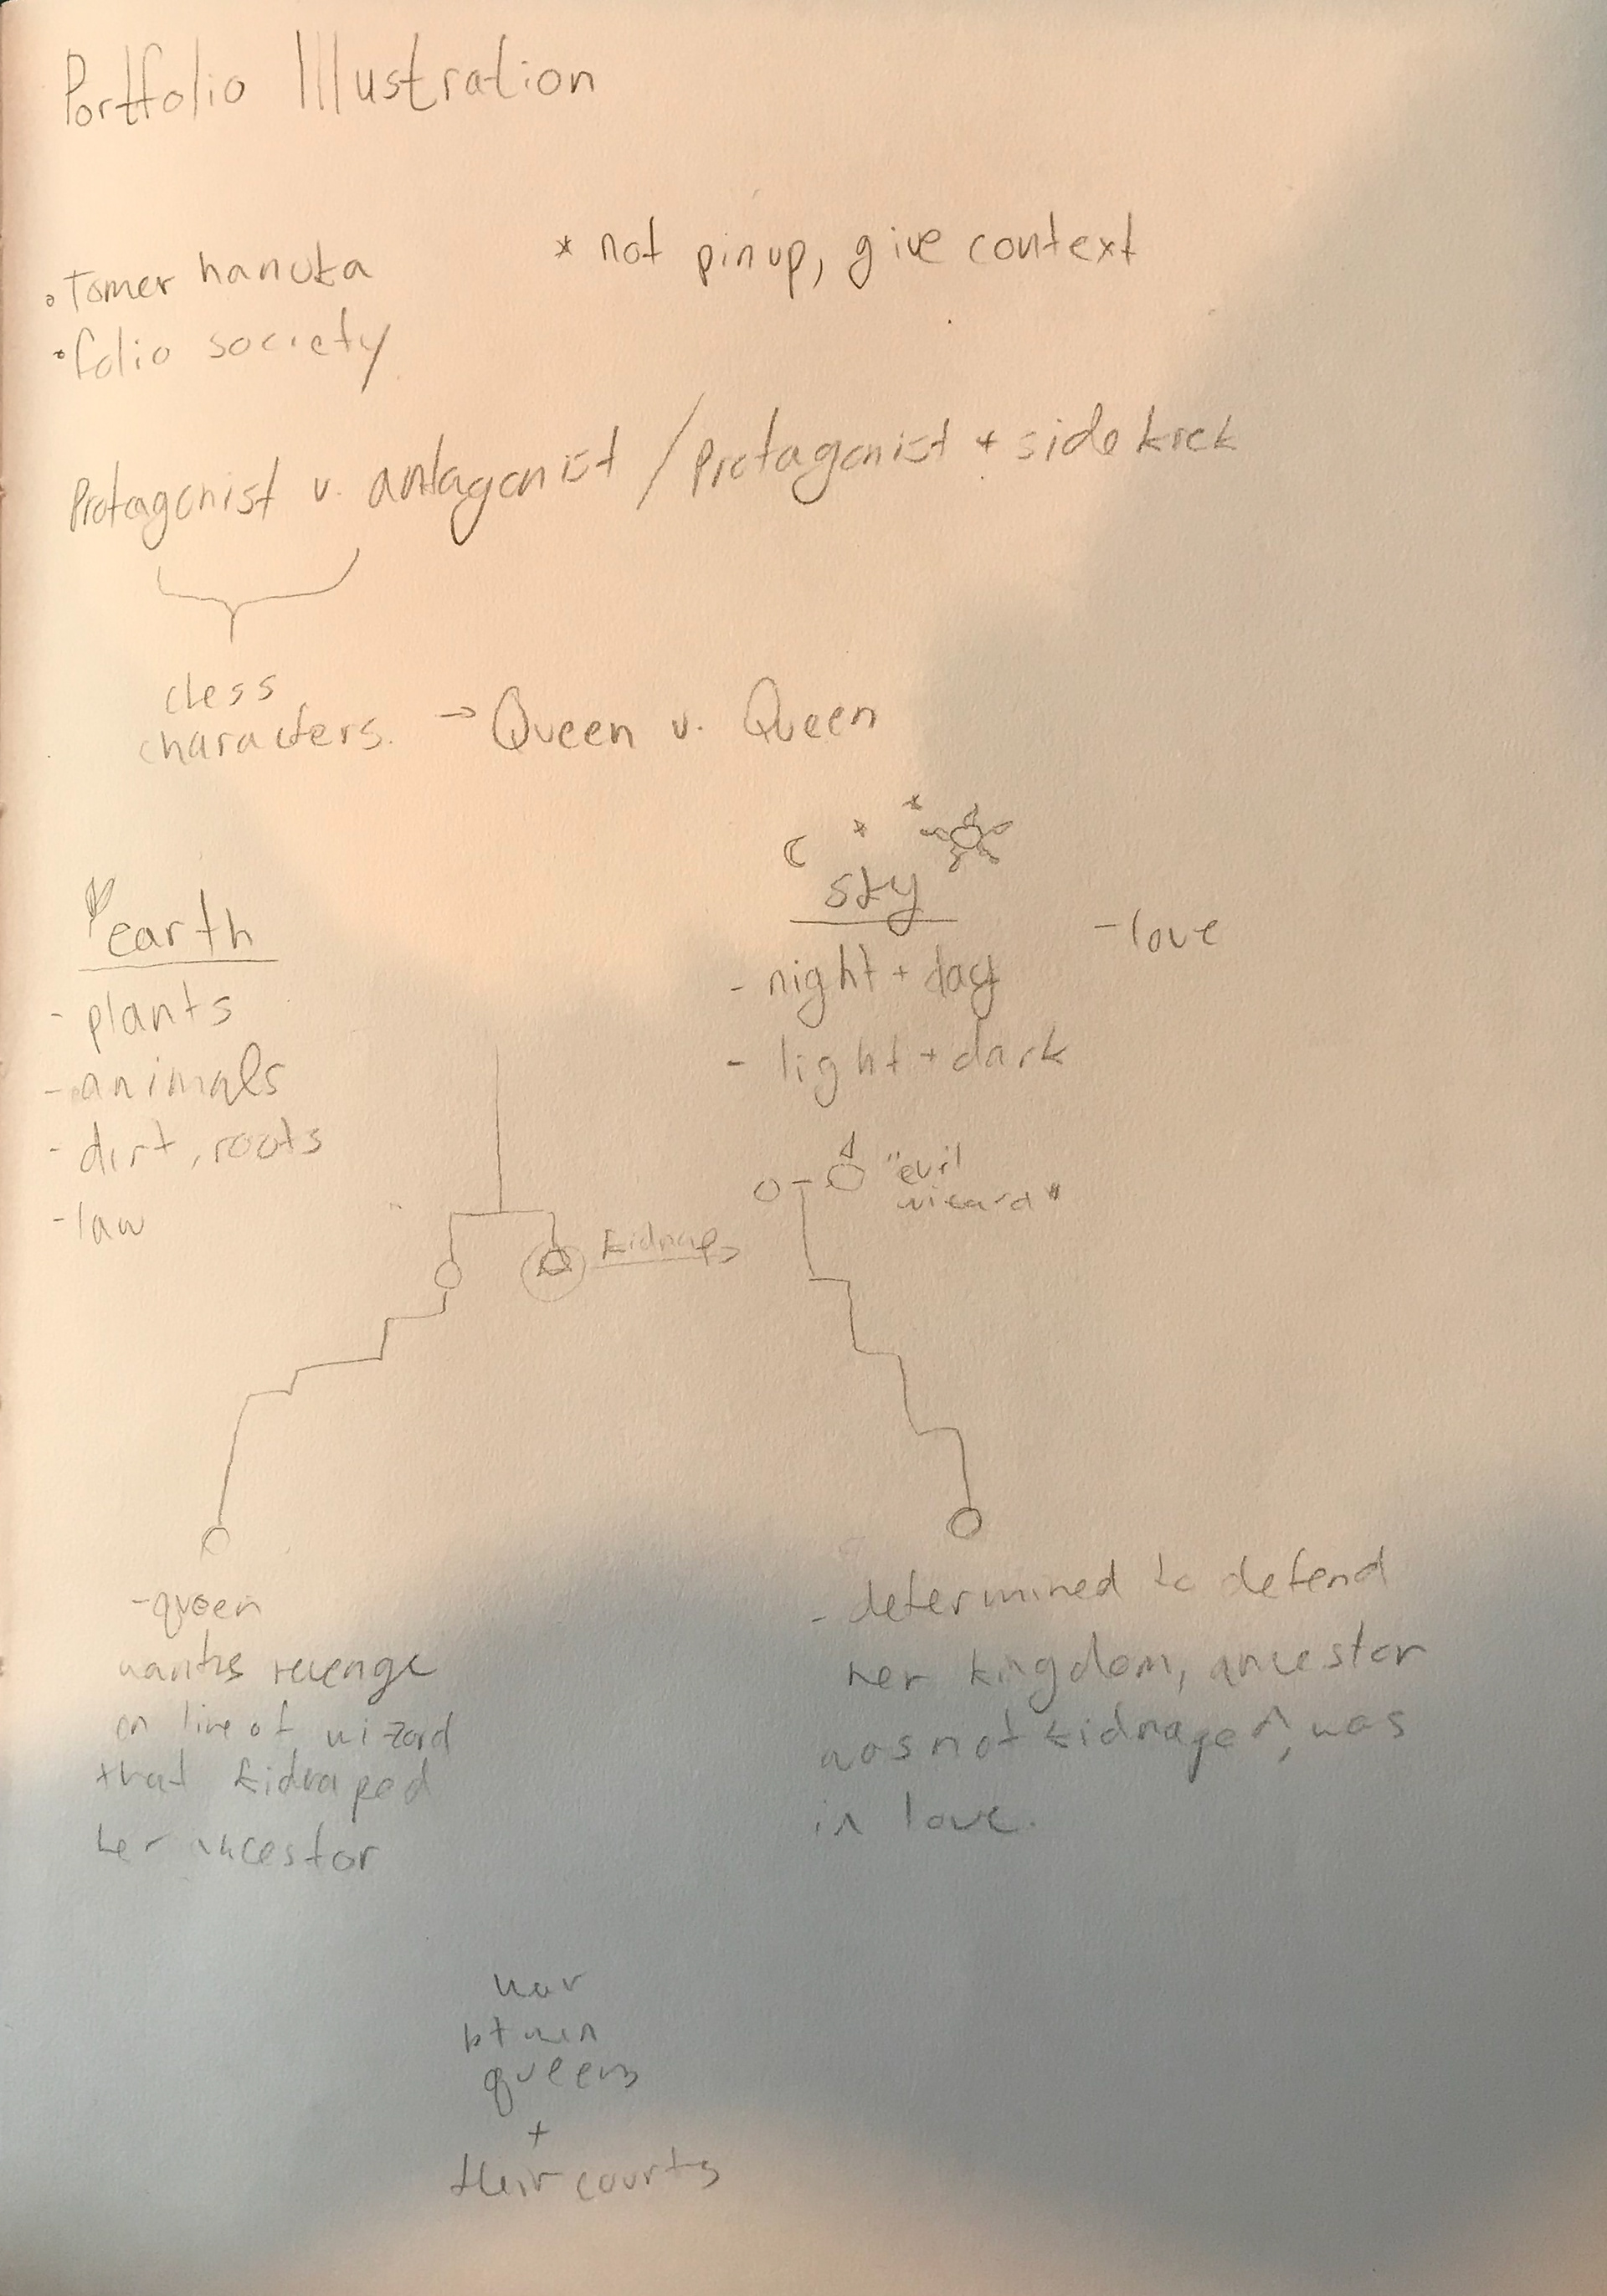 Portfolio Illustration
* not pinup, give context
• Tomer hanuka
• folio society
Protagonist v. antagonist / Protagonist + sidekick
chess
characters. → Queen v. Queen
earth
- plants
- animals
- dirt, roots
- law
sky
- night + day
- light + dark
- love
"evil
wizard"
kidnap
- queen
wants revenge
on line of wizard
that kidnaped
her ancestor
- determined to defend
her kingdom, ancestor
was not kidnaped, was
in love.
war
btwen
queens
+
their courts